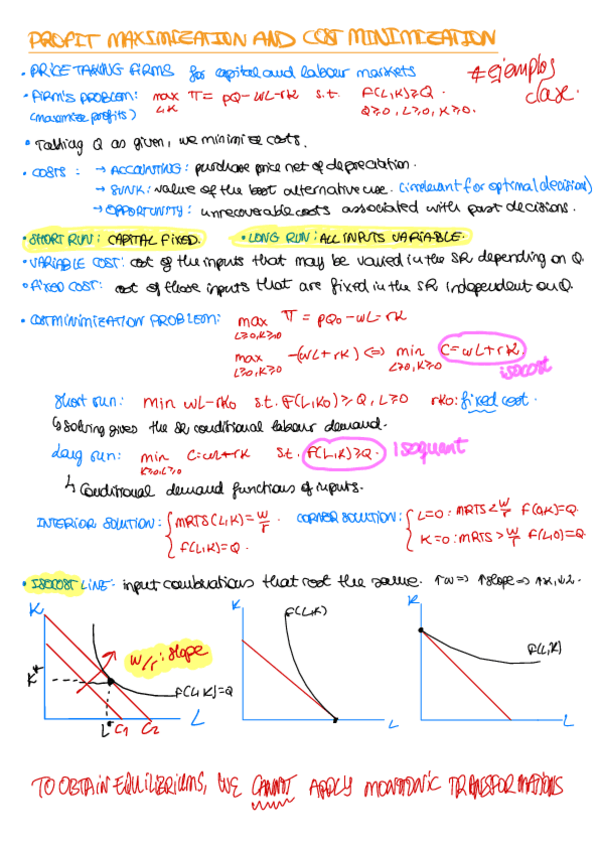 PROFIT MAXIMIZATION AND COST MINIMIZATION
• PRICE TAKING FIRMS for capital and labour markets
# ejemplos clase.
• FIRM'S PROBLEM: max π = pQ - wL - rK s.t. F(L,K) ≥ Q
L,K
(maximize profits) Q ≥ 0, L ≥ 0, K ≥ 0.
• Talking Q as given, we minimise costs.
• COSTS: → ACCOUNTING: purchase price net of depreciation.
→ SUNK: value of the best alternative use. (irrelevant for optimal decision)
→ OPPORTUNITY: unrecoverable costs associated with past decisions.
• SHORT RUN: CAPITAL FIXED. • LONG RUN: ALL INPUTS VARIABLE.
• VARIABLE COST: cost of the inputs that may be varied in the SR depending on Q.
• FIXED COST: cost of those inputs that are fixed in the SR independent on Q.
• COST MINIMIZATION PROBLEM: max π = pQ0 - wL - rK
L≥0, K≥0
max -(wL + rK) <=> min C = wL + rK.
L≥0, K≥0 L≥0, K≥0
isocost
Short run: min wL - rK0 s.t. F(L,K0) ≥ Q, L ≥ 0 rK0: fixed cost.
↳ Solving gives the SR conditional labour demand.
Long run: min C = wL + rK s.t. F(L,K) ≥ Q. Isoquant
K≥0, L≥0
↳ Conditional demand functions of inputs.
INTERIOR SOLUTION: { MRTS(L,K) = w/r CORNER SOLUTION: { L=0: MRTS < w/r F(0,K)=Q.
F(L,K) = Q. K=0: MRTS > w/r F(L,0)=Q.
• ISOCOST LINE: input combinations that cost the same. ↑w => ↑slope => ↑K, ↓L.
K
K*
w/r: slope
F(L,K)=Q
L* C1 C2 L
K
F(L,K)
L
K
F(L,K)
L
TO OBTAIN EQUILIBRIUMS, WE CANNOT APPLY MONOTONIC TRANSFORMATIONS